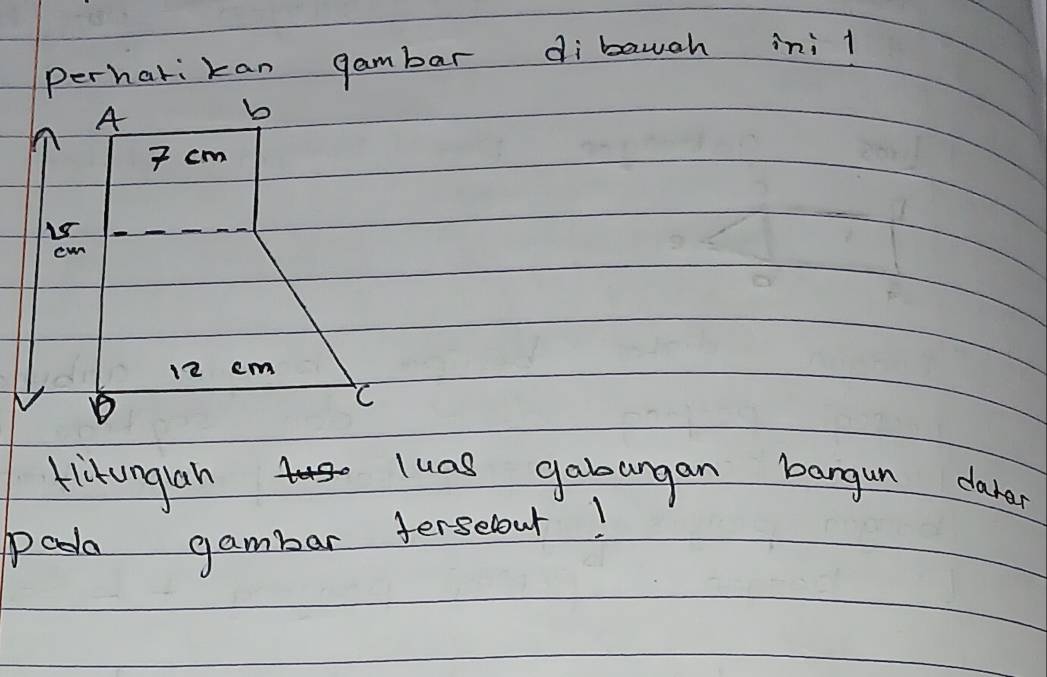 Perhatikan gambar di bawah ini!
A b
7 cm
15
cm
12 cm
D C
Hitunglah luas gabungan bangun datar
pada gambar tersebut!